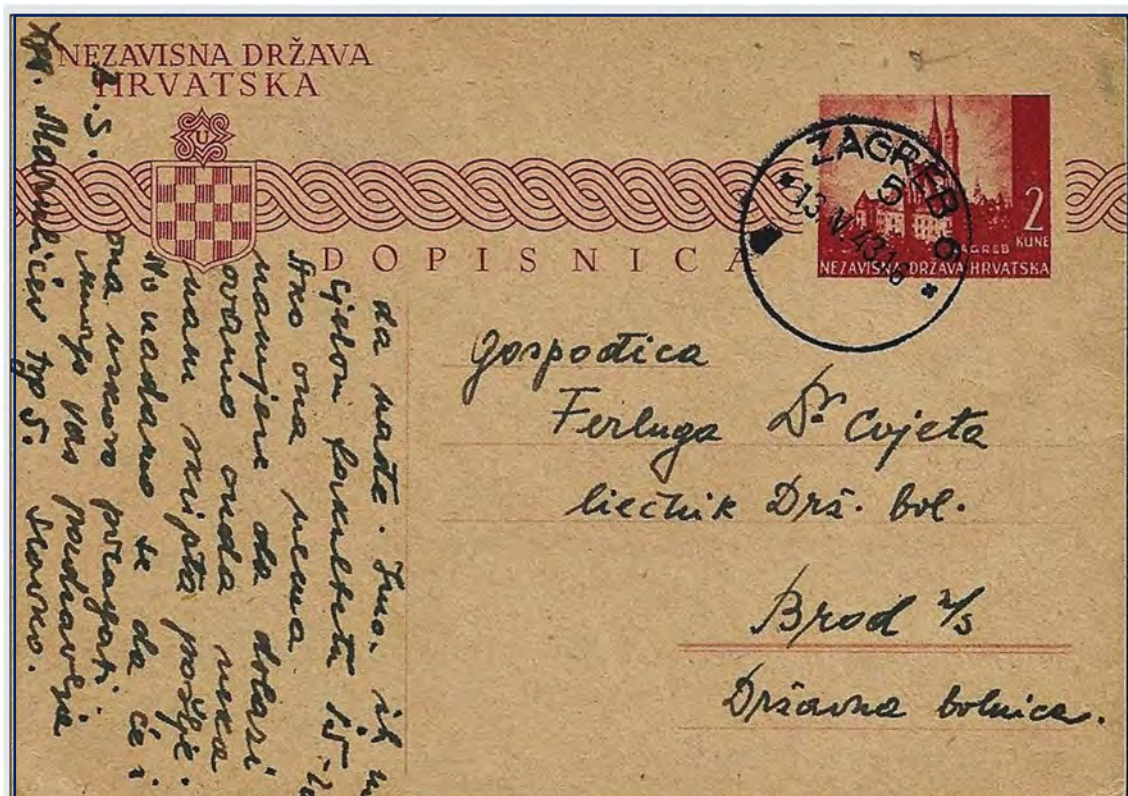 NEZAVISNA DRŽAVA
HRVATSKA
U
DOPISNICA
ZAGREB
5
6
13 V 43 16
2
KUNE
ZAGREB
NEZAVISNA DRŽAVA HRVATSKA
Gospođica
Ferluga Dr Cvjeta
liečnik Drž. bol.
Brod n/s
Državna bolnica.
da nađe.
cjelom fakultetu 15-
Ako ona nema
namjere da dolazi
ovamo onda neka
nam skripta pošlje.
No nadamo se da će i
ona uskoro
mnogo Vas pozdravlja
Slavko.
Marulićev trg 5.